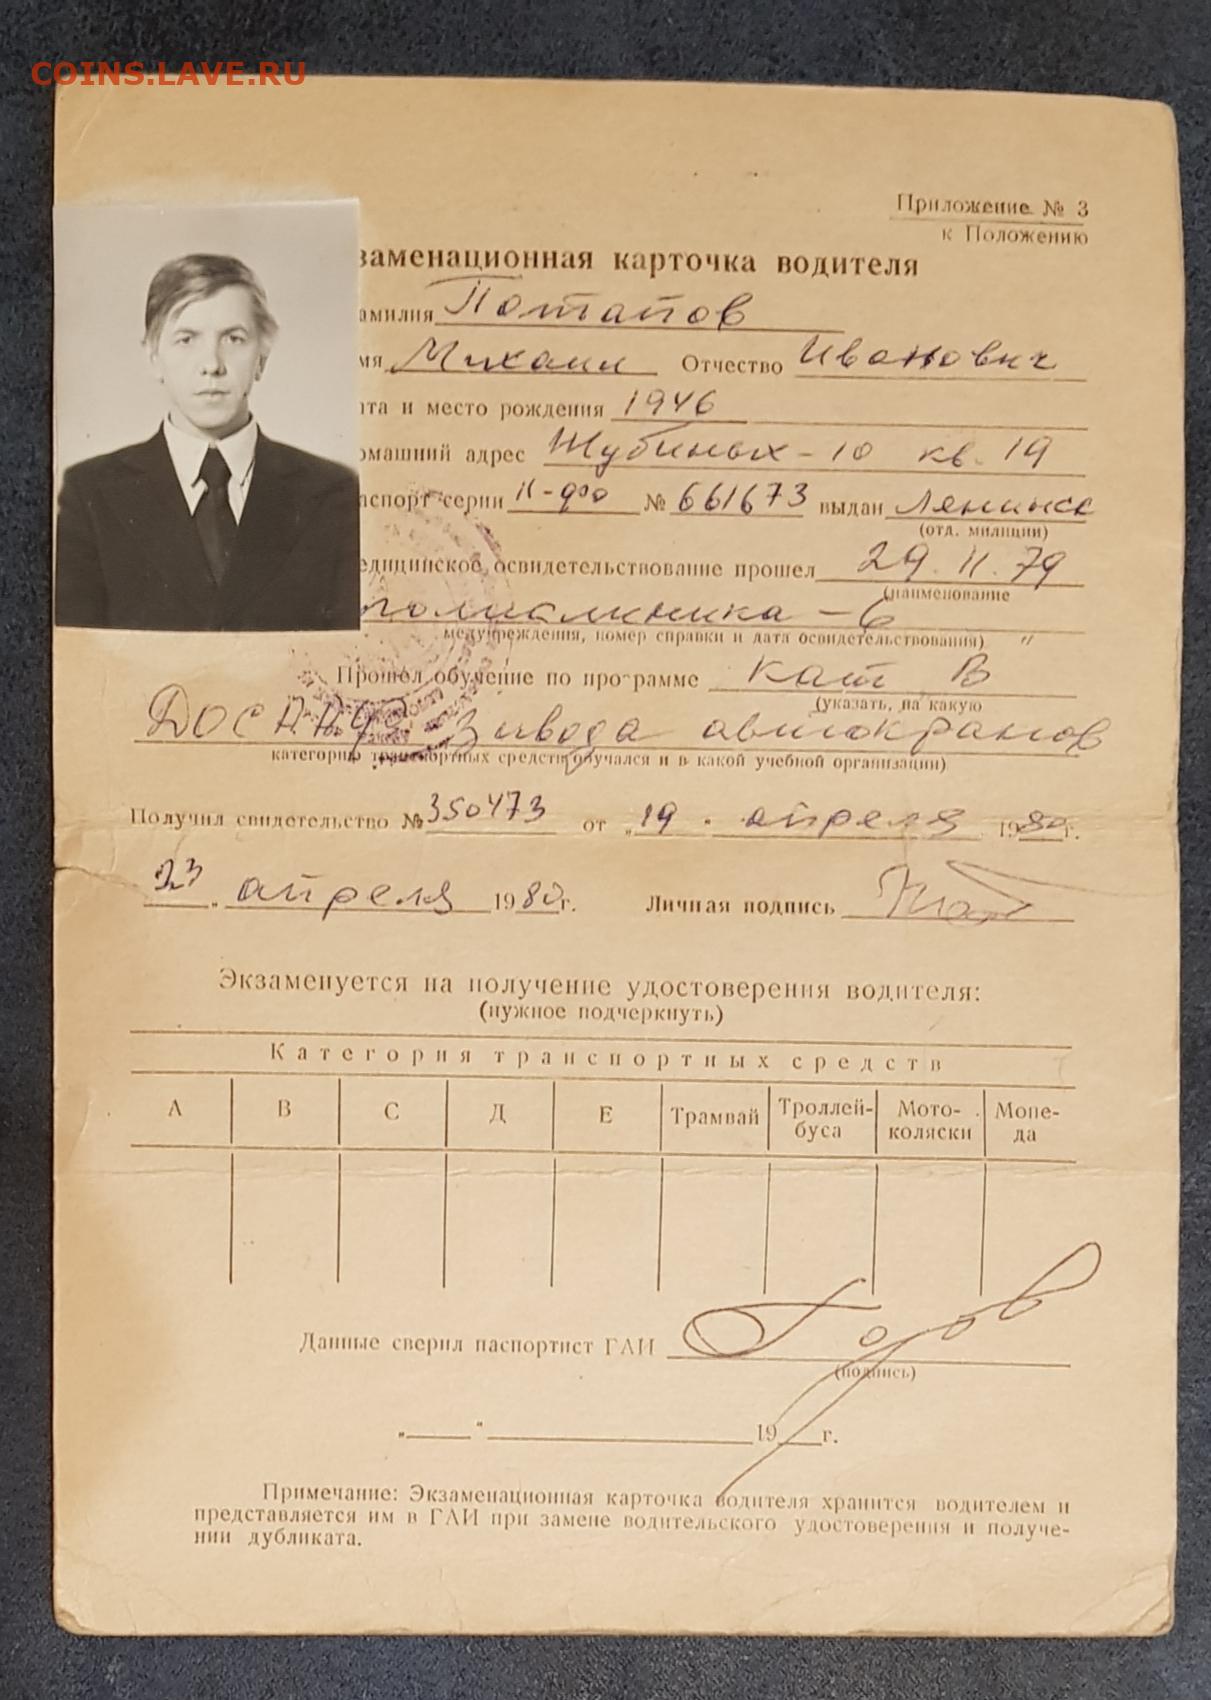 COINS.LAVE.RU
Приложение № 3
к Положению
заменационная карточка водителя
амилия Потапов
мя Михаил Отчество Иванович
та и место рождения 1946
омашний адрес Шубиных-10 кв. 19
аспорт серии II-фо № 661673 выдан Ленинск
(отд. милиции)
едицинское освидетельствование прошел 29.11.79
(наименование
поликлиника-6
медучреждения, номер справки и дата освидетельствования) "
Прошел обучение по программе кат В
(указать, на какую
ДОСААФ Завода автокранов
категорию транспортных средств обучался и в какой учебной организации)
Получил свидетельство № 350473 от „19" апреля 1980 г.
23 " апреля 1980 г. Личная подпись
Экзаменуется на получение удостоверения водителя:
(нужное подчеркнуть)
Категория транспортных средств
А В С Д Е Трамвай Троллей-буса Мото-коляски Мопе-да
Данные сверил паспортист ГАИ
(подпись)
„ " 19 г.
Примечание: Экзаменационная карточка водителя хранится водителем и
представляется им в ГАИ при замене водительского удостоверения и получе-
нии дубликата.